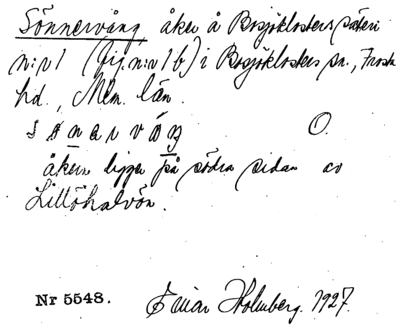 Sönnervång åker å Bosjöklosters säteri
n:r 1 (fig. n:r 1 b) i Bosjöklosters sn., Frosta
hd., Mlm. län.
sønarvåŋ O.
åkern ligger på södra sidan av
Lillöhalvön.
Nr 5548. Einar Holmberg. 1927.